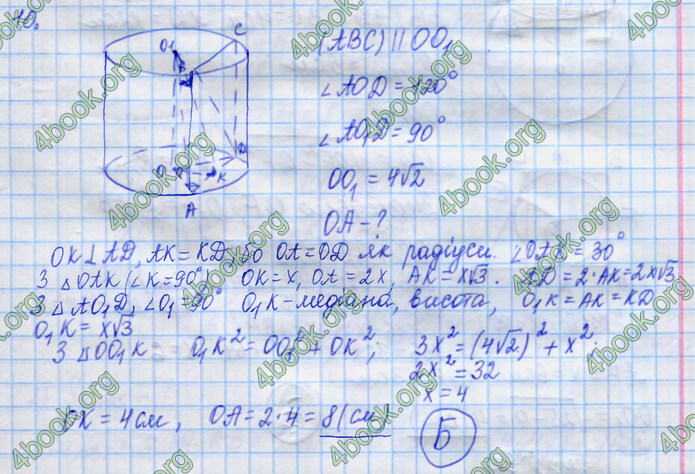 10.
O₁
C
B
O
D
K
A
(ABC) || OO₁
∠AOD = 120°
∠AO₁D = 90°
OO₁ = 4√2
OA - ?
OK⊥AD, AK = KD, бо OA = OD як радіуси. ∠OA = 30°
З △OAK (∠K = 90°) OK = x, OA = 2x, AK = x√3. AD = 2·AK = 2x√3
З △AO₁D, ∠O₁ = 90° O₁K - медіана, висота, O₁K = AK = KD
O₁K = x√3
З △OO₁K O₁K² = OO₁² + OK²; 3x² = (4√2)² + x²;
2x² = 32
x = 4
OK = 4см, OA = 2·4 = 8 (см)
Б
4book.org